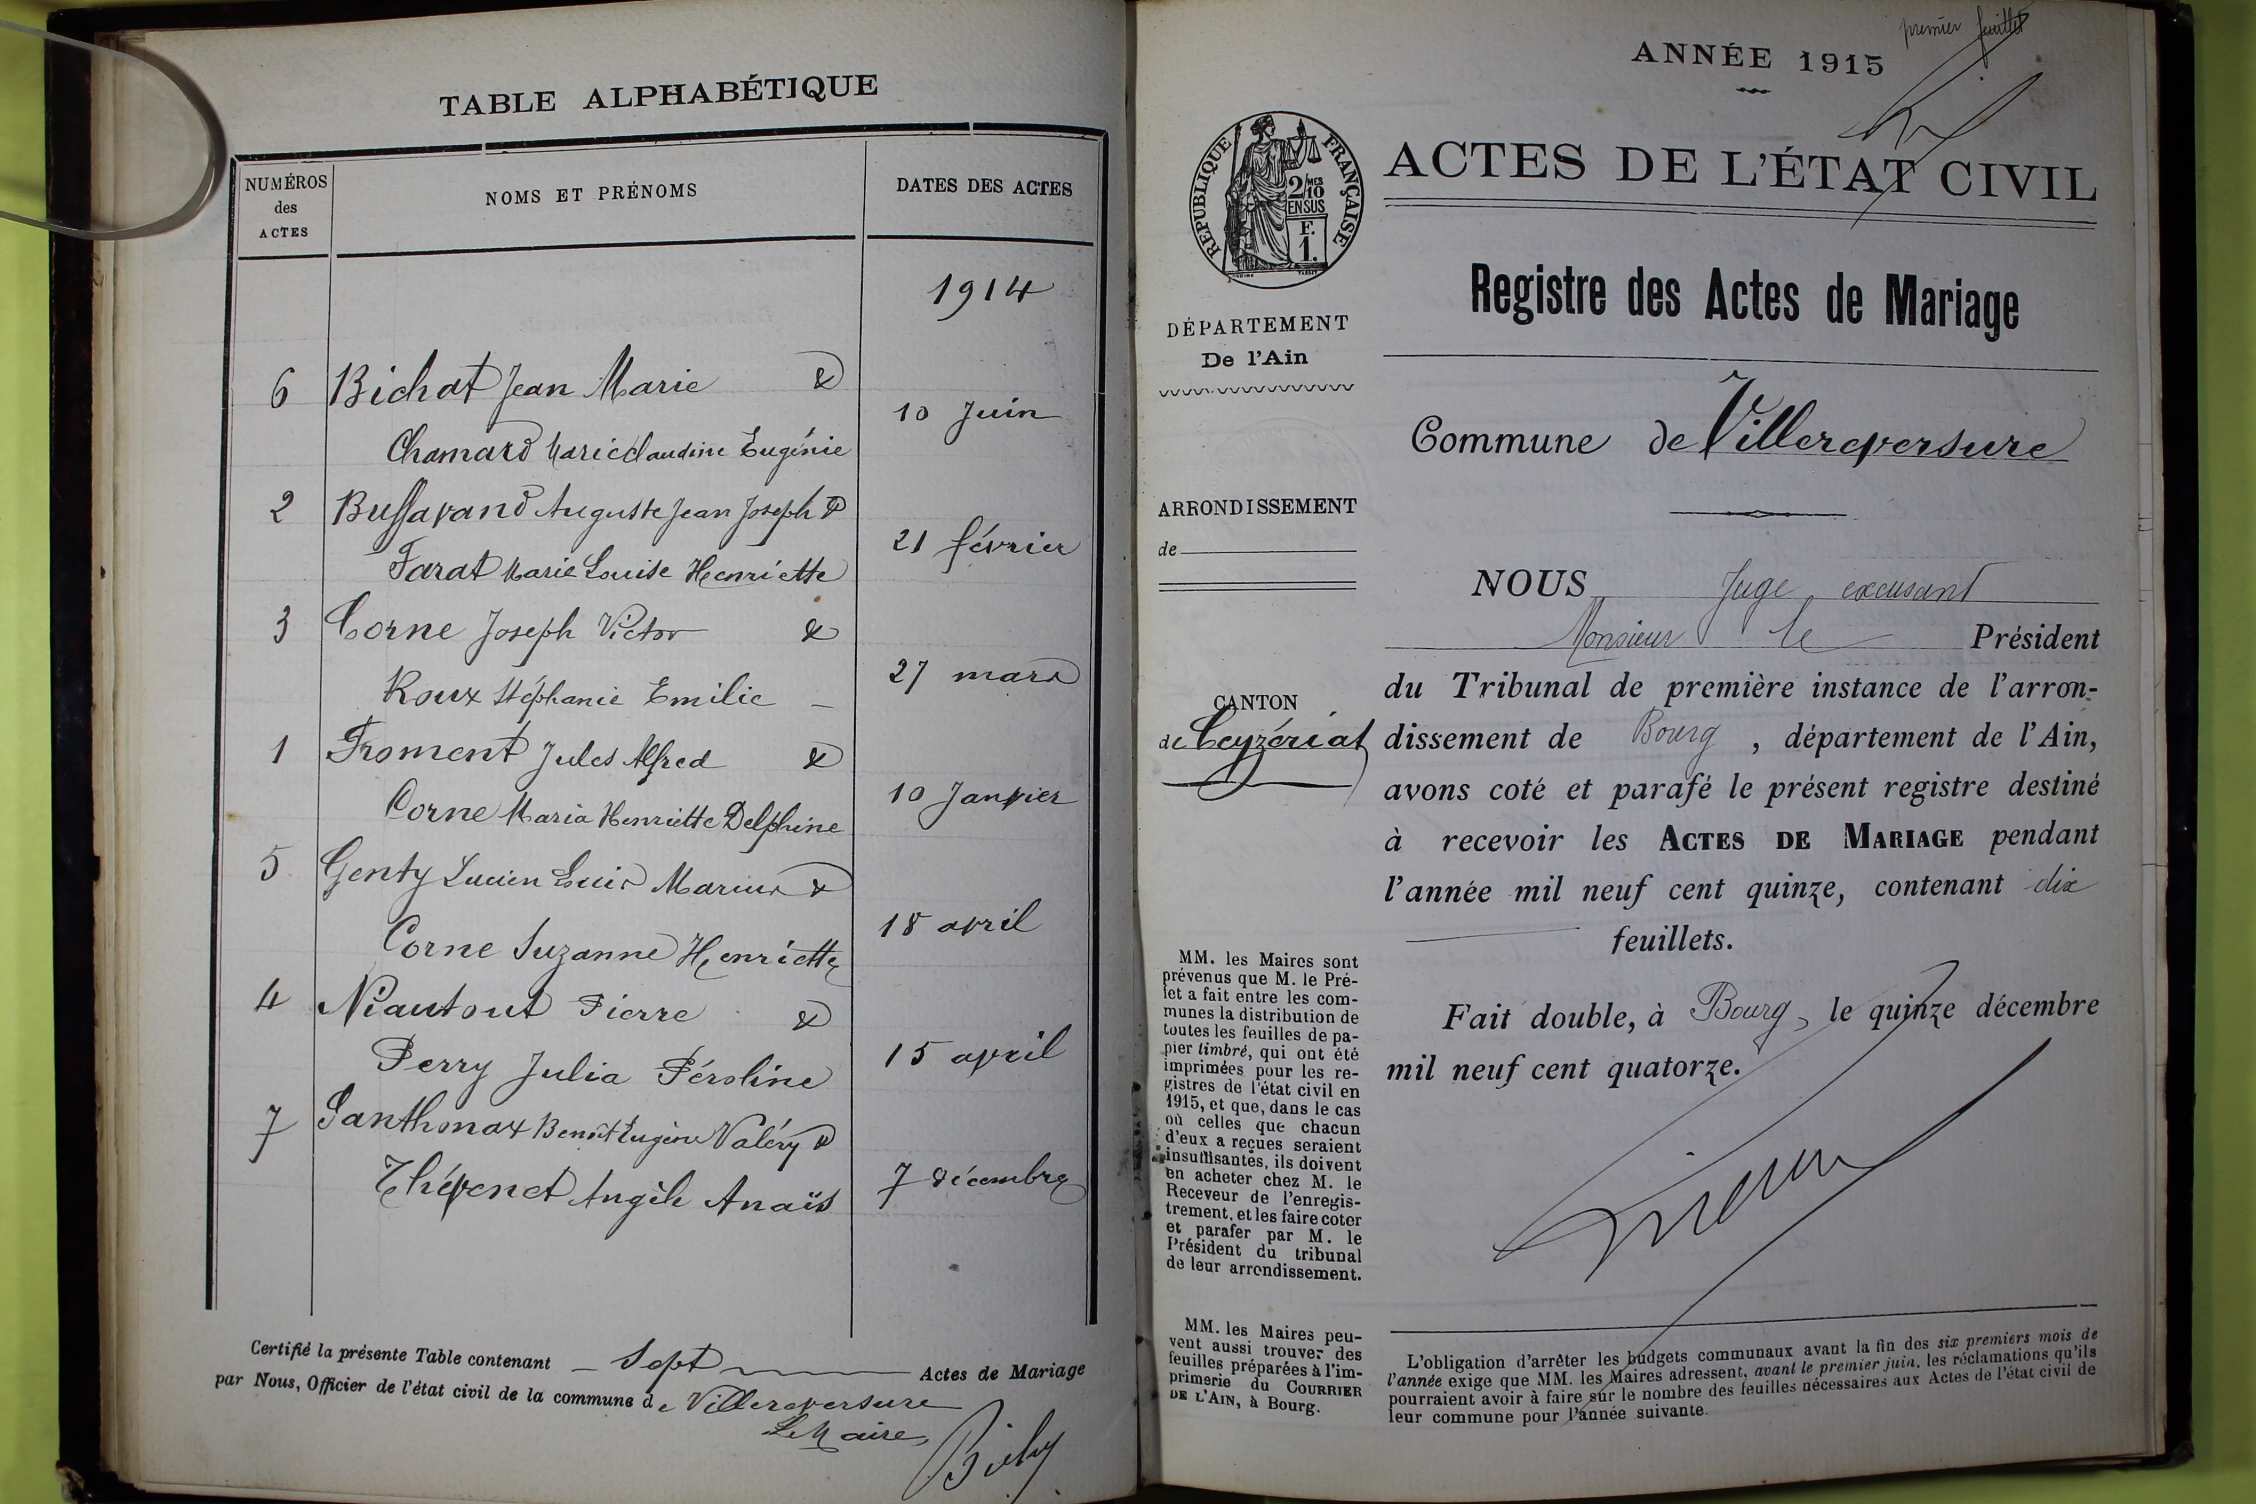 TABLE ALPHABÉTIQUE
NUMÉROS
des
ACTES
NOMS ET PRÉNOMS
DATES DES ACTES
1914
6 Bichat Jean Marie &
10 Juin
Chamard Marie Claudine Eugénie
2 Buffavand Auguste Jean Joseph &
21 février
Farat Marie Louise Henriette
3 Corne Joseph Victor &
27 mars
Roux Stéphanie Emilie
1 Froment Jules Alfred &
10 Janvier
Corne Maria Henriette Delphine
5 Genty Lucien Louis Marius &
18 avril
Corne Suzanne Henriette
4 Niautout Pierre &
15 avril
Perry Julia Féroline
7 Santhonax Benoît Eugène Valéry &
7 décembre
Thévenet Angèle Anaïs
Certifié la présente Table contenant — Sept — Actes de Mariage
par Nous, Officier de l'état civil de la commune de Villereversure
Le Maire,
premier feuillet
ANNÉE 1915
ACTES DE L'ÉTAT CIVIL
RÉPUBLIQUE FRANÇAISE
2/10 MES
EN SUS
F.
1.
Registre des Actes de Mariage
DÉPARTEMENT
De l'Ain
Commune de Villereversure
ARRONDISSEMENT
de
NOUS Juge excusant
Monsieur le Président
du Tribunal de première instance de l'arron-
CANTON
de Ceyzériat
dissement de Bourg, département de l'Ain,
avons coté et parafé le présent registre destiné
à recevoir les ACTES DE MARIAGE pendant
l'année mil neuf cent quinze, contenant dix
feuillets.
Fait double, à Bourg, le quinze décembre
mil neuf cent quatorze.
MM. les Maires sont
prévenus que M. le Pré-
fet a fait entre les com-
munes la distribution de
toutes les feuilles de pa-
pier timbré, qui ont été
imprimées pour les re-
gistres de l'état civil en
1915, et que, dans le cas
où celles que chacun
d'eux a reçues seraient
insuffisantes, ils doivent
en acheter chez M. le
Receveur de l'enregis-
trement, et les faire coter
et parafer par M. le
Président du tribunal
de leur arrondissement.
MM. les Maires peu-
vent aussi trouver des
feuilles préparées à l'im-
primerie du COURRIER
DE L'AIN, à Bourg.
L'obligation d'arrêter les budgets communaux avant la fin des six premiers mois de
l'année exige que MM. les Maires adressent, avant le premier juin, les réclamations qu'ils
pourraient avoir à faire sur le nombre des feuilles nécessaires aux Actes de l'état civil de
leur commune pour l'année suivante.